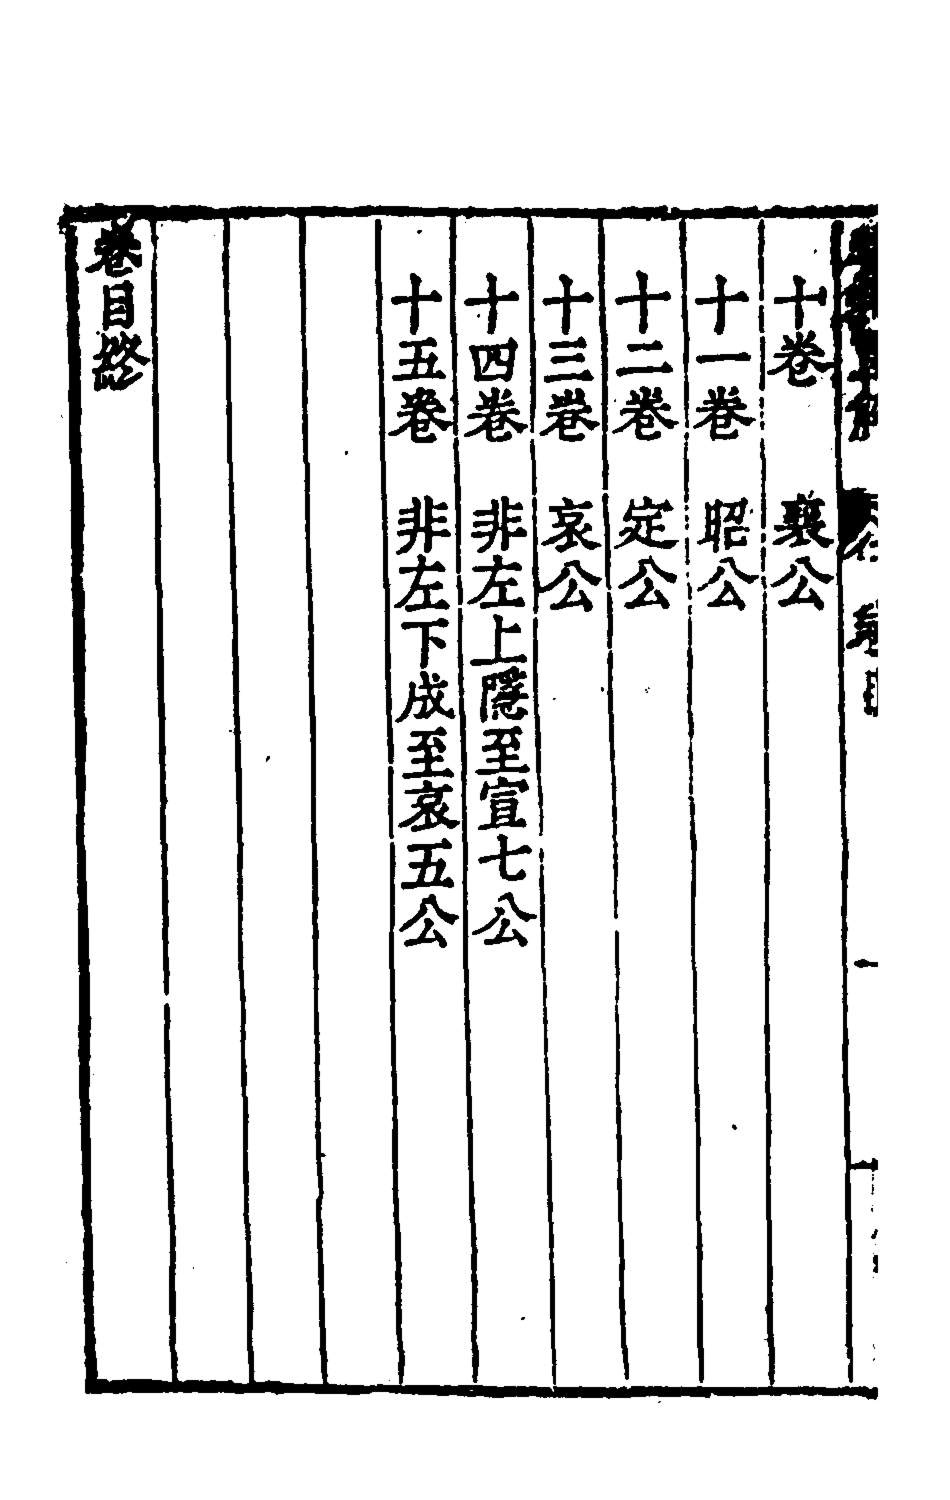 十卷　襄公
十一卷　昭公
十二卷　定公
十三卷　哀公
十四卷　非左上隱至宣七公
十五卷　非左下成至哀五公
卷目終